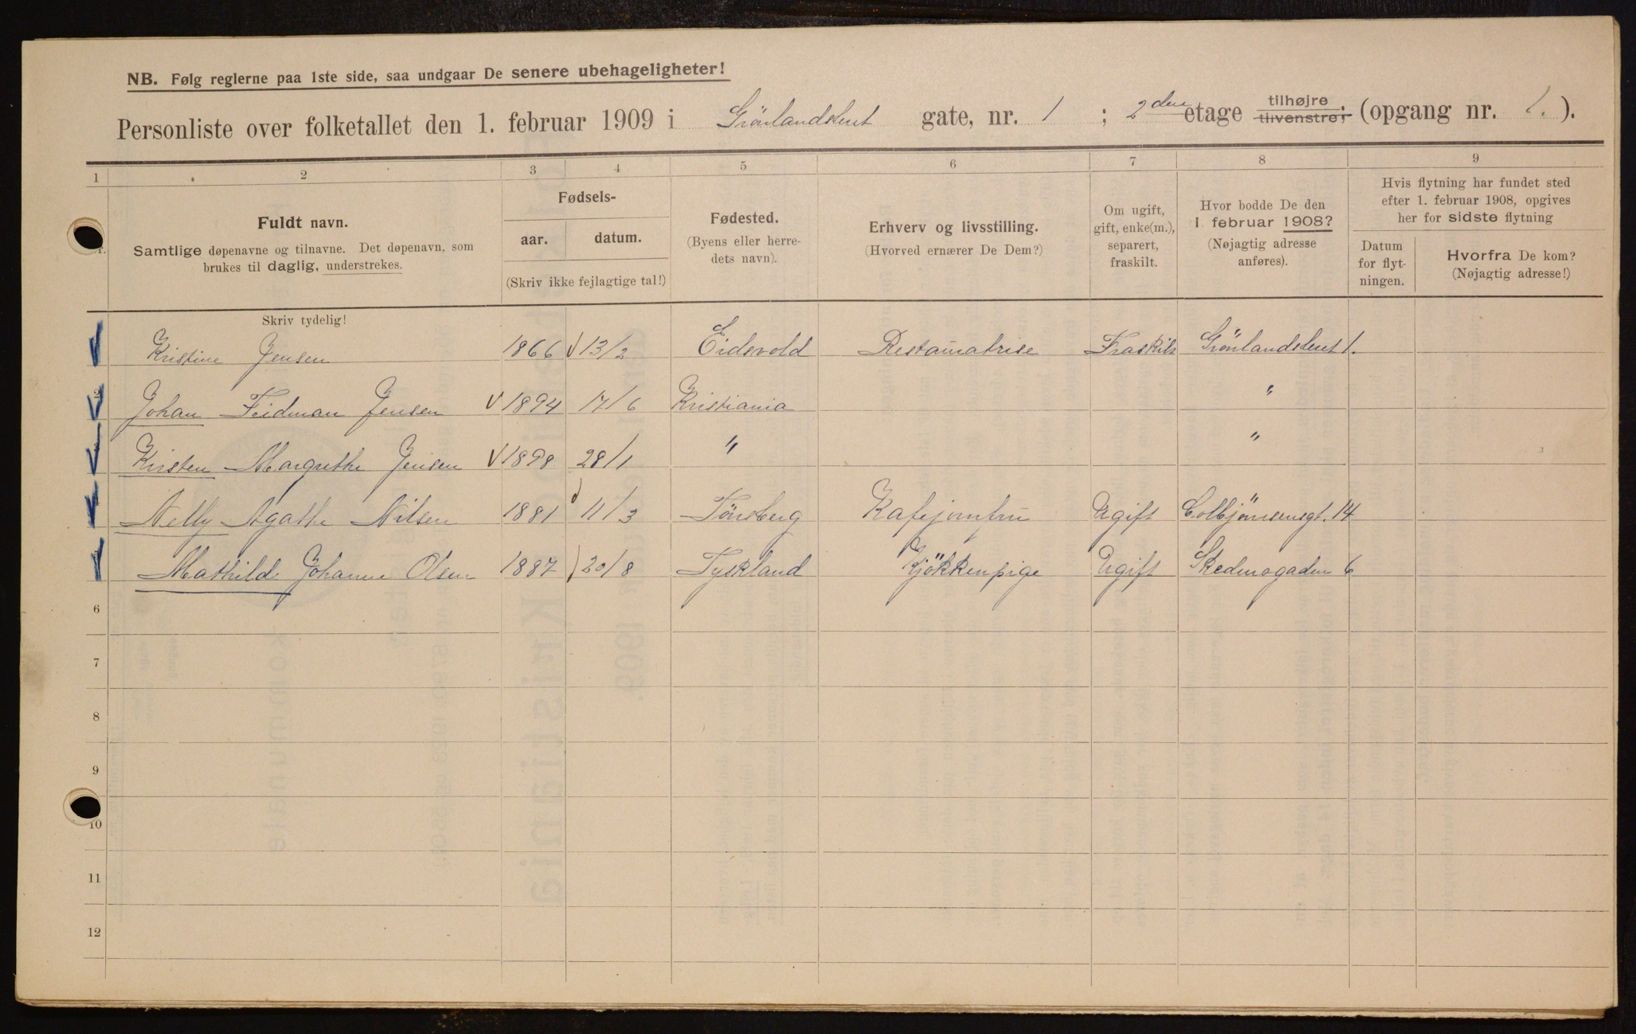 NB. Følg reglerne paa 1ste side, saa undgaar De senere ubehageligheter!
Personliste over folketallet den 1. februar 1909 i Grönlandsleret gate, nr. 1 ; 2den etage tilhøjre tilvenstre; (opgang nr. 1. ).
1 2 3 4 5 6 7 8 9
Fuldt navn.
Samtlige døpenavne og tilnavne. Det døpenavn, som
brukes til daglig, understrekes.
Fødsels-
aar. datum.
(Skriv ikke fejlagtige tal!)
Fødested.
(Byens eller herre-
dets navn).
Erhverv og livsstilling.
(Hvorved ernærer De Dem?)
Om ugift,
gift, enke(m.),
separert,
fraskilt.
Hvor bodde De den
1 februar 1908?
(Nøjagtig adresse
anføres).
Hvis flytning har fundet sted
efter 1. februar 1908, opgives
her for sidste flytning
Datum
for flyt-
ningen.
Hvorfra De kom?
(Nøjagtig adresse!)
Skriv tydelig!
Kristine Jensen 1866 13/2 Eidsvold Restauratrise Fraskilt Grönlandsleret 1.
Johan Feidman Jensen 1894 17/6 Kristiania "
Kristen Margrethe Jensen 1898 28/1 " "
Nelly Agathe Nilsen 1881 11/3 Tönsberg Kafejomfru Ugift Colbjönsensgt. 14
Mathilde Johanne Olsen 1887 20/8 Tyskland Kjökkenpige Ugift Skedsmogaden 6
6
7
8
9
10
11
12